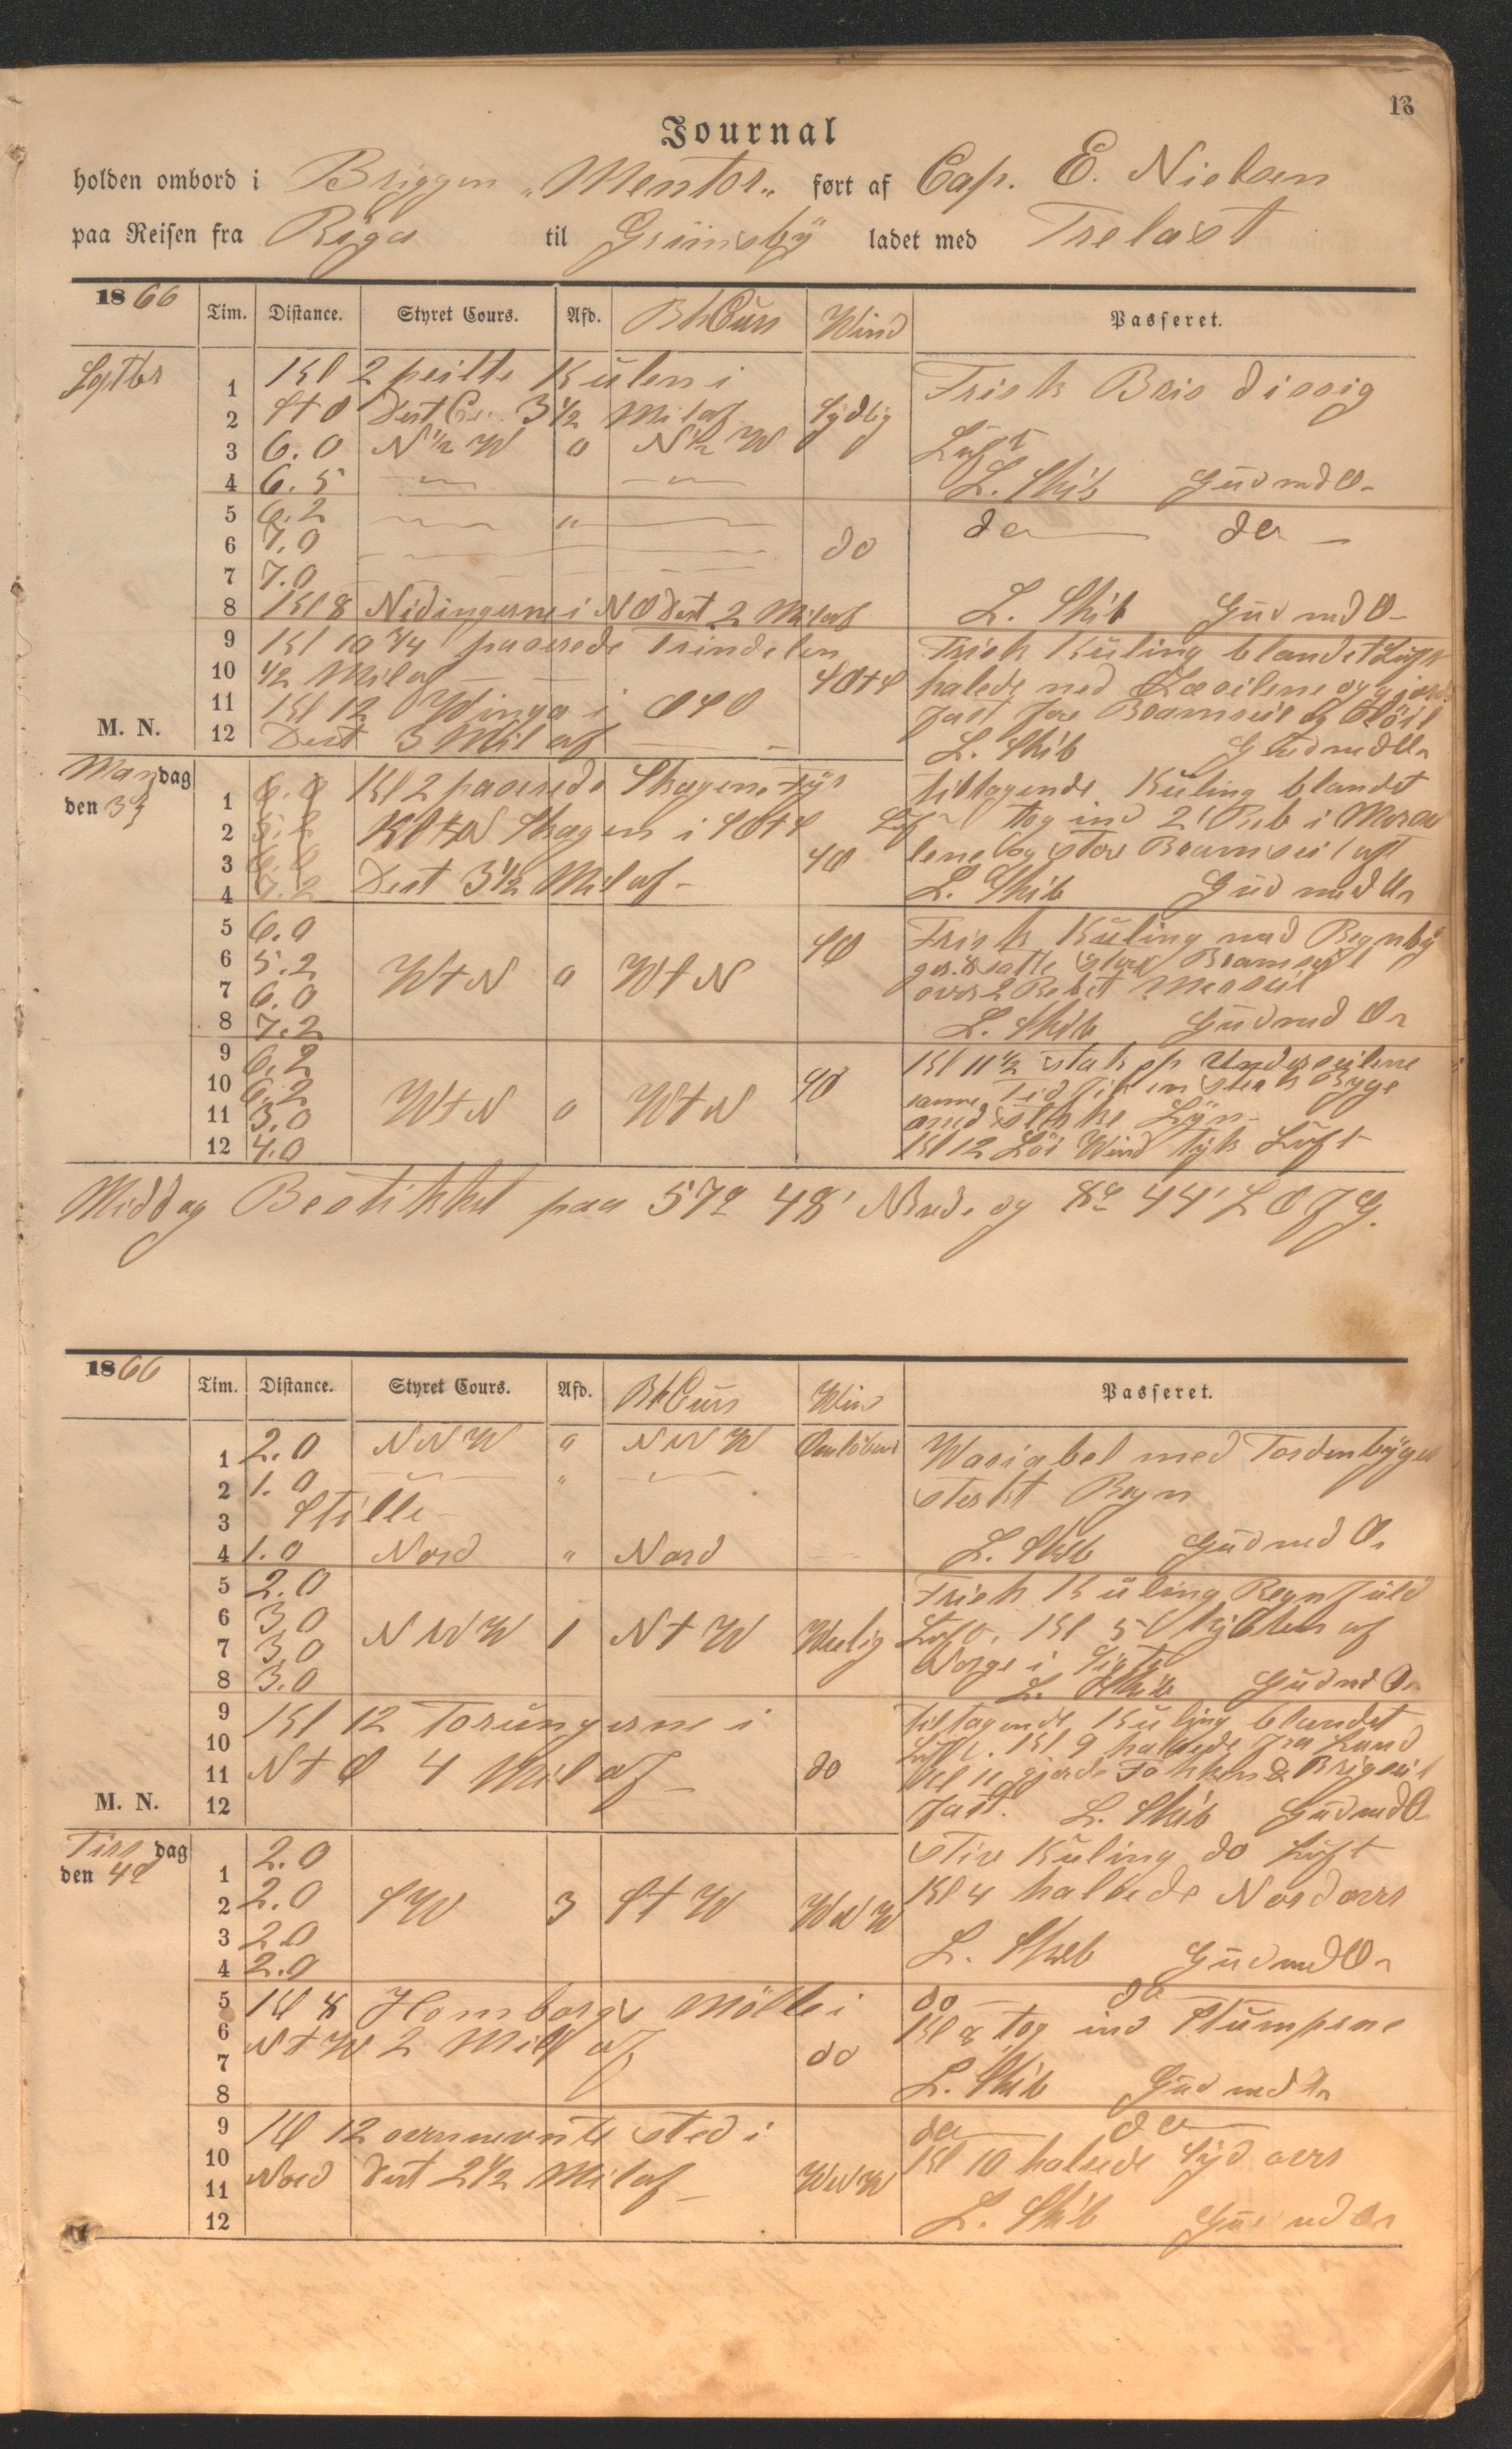 13
Journal
holden ombord i Briggen "Mentor" ført af Cap. E. Nielsen
paa Reisen fra Riga til Grimsby ladet med Trelast
1866 Tim. Distance. Styret Cours. Afd. Bh Curs Wind Passeret.
Septbr
1 Kl 2 peilte Kulen i Frisk Bris disig
2 StO Dest 3 1/2 Mil af Sydlig
3 6.0 N 1/2 W 0 N 1/2 W Luft
4 6.5 L. Skib Gud med O-
5 6.2 "
6 7.0 do do do
7 7.0
8 Kl 8 Nidingerne i NO Dest 2 Mil af L. Skib Gud med O-
9 Kl 10 3/4 passerede Trindelen Frisk Kuling blandet Luft
10 1/2 Mil af SOtS halede ned Læseilene og gjorde
11 Kl 12 Winga i OSO fast
M. N. 12 Dest 3 Mil af L. Skib Gud med O-
Mandag den 3d
1 6.0 Kl 2 passerede Skagens Fyr tiltagende Kuling blandet
2 Skagen i SOtS Luft tog ind 2 Reb i Merse
3 SO lene og store Bramseil
4 7.2 Dest 3 1/2 Mil af L. Skib Gud med O-
5 6.0 SO Frisk Kuling med Regnby
6 5.2 ger. 8 satte store Bramseil
7 6.0 WtN 0 WtN over 2 Rebet Merseil
8 7.2 L. Skib Gud med O-
9 6.2 Kl 11 1/2 stak op Underseilene
10 6.2 SO samme Tid fik en sterk Bygge
11 3.0 WtN 0 WtN med sterke Lyn
12 4.0 Kl 12 Løi Wind tyk Luft
Middag Bestikket paa 57° 48' N Brede og 8° 44' L O f G.
1866 Tim. Distance. Styret Cours. Afd. Bh Curs Win Passeret.
1 2.0 NNW 0 NNW Omløbend Wariabel med Tordenbyger
2 1.0 " sterkt Regn
3 Stille
4 1.0 Nord " Nord L. Skib Gud med O-
5 2.0 Frisk Kuling Regnfuld
6 3.0 NNW 1 NtW Westlig Luft. Kl 5 Kysten af
7 3.0 Norge i Sigte
8 3.0 L. Skib Gud med O-
9 Kl 12 Torungerne i tiltagende Kuling blandet
10 Luft. Kl 9 halsede fra Land
11 NtO 4 Mil af do Kl 11 gjorde Fokken & Brigseil
M. N. 12 fast. L. Skib Gud med O-
Tirsdag den 4d
1 2.0 stiv Kuling do Luft
2 2.0 SW 3 StW WNW Kl 4 halsede Nordover
3 2.0 L. Skib Gud med O-
4 2.0
5 Kl 8 Homborgs Mølle i do do
6 NtW 2 Mill af Kl 8 tog ind Stumpene
7 do
8 L. Skib Gud med O-
9 Kl 12 overnevnte sted i do do
10 Nord Dest 2 1/2 Mil af Kl 10 halsede Syd over
11 WNW
12 L. Skib Gud med O-